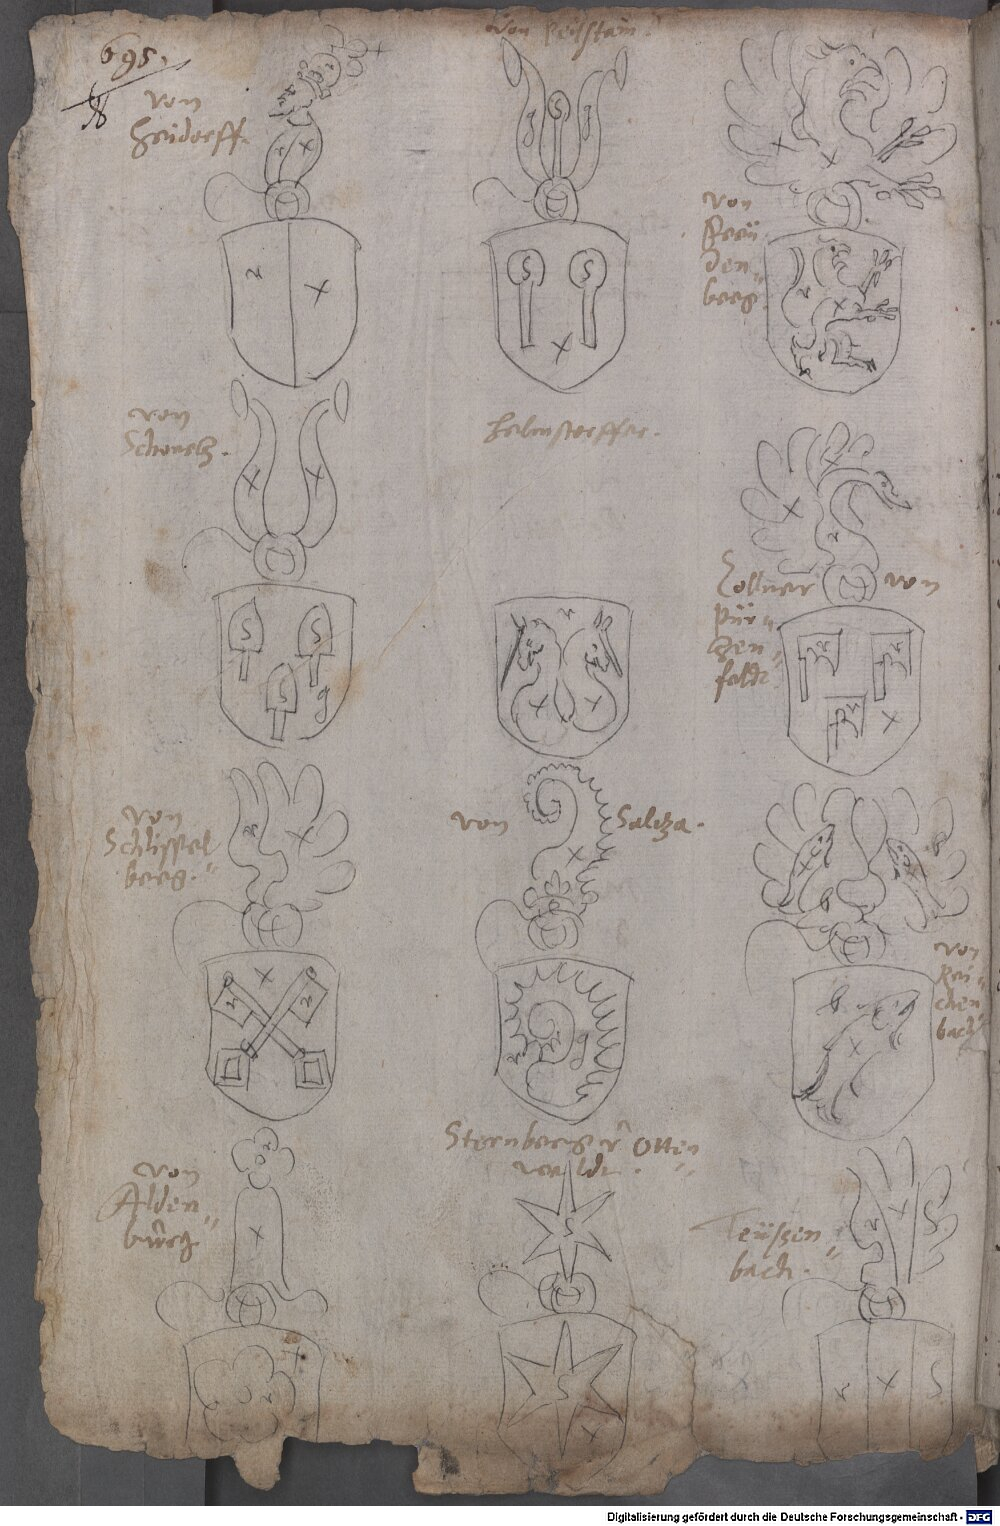 695.
von
Heidorff.
von Peilstain.
von
Freü
den"
berg.
von
Schonelz.
Helmstorffer.
Zollner von
Pür"
tzen"
feldt
von
Schlissel
berg."
von Saltza.
von
Rei"
chen
bach
von
Alden"
burg
Sternberger Otten"
waldt.
Teüffen"
bach.
Digitalisierung gefördert durch die Deutsche Forschungsgemeinschaft - DFG